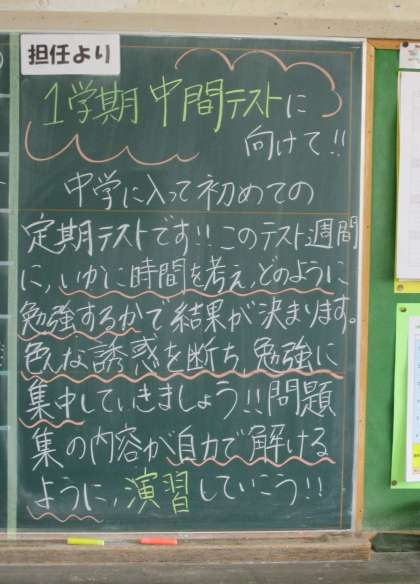 担任より
1学期中間テストに
向けて!!
中学に入って初めての
定期テストです!!このテスト週間
に、いかに時間を考え、どのように
勉強するかで結果が決まります。
色んな誘惑を断ち、勉強に
集中していきましょう!!問題
集の内容が自力で解ける
ように、演習していこう!!